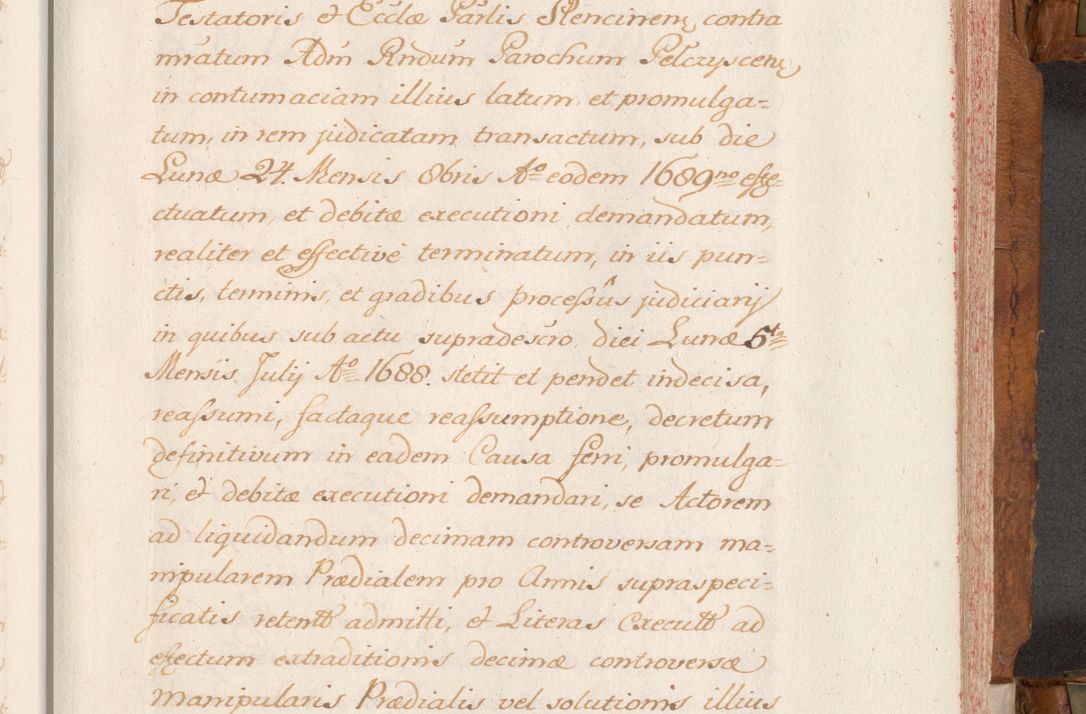 Testatoris et Ecclæ Parlis Slencinens, contra
mratum Adm̃ Rndum Parochum Pelczyscens
in contumaciam illius latum, et promulga=
tum, in rem judicatam transactum, sub die
Lunæ 24. Mensis 8bris Aº eodem 1689no effe=
ctuatum, et debitæ executioni demandatum,
realiter et effectivè terminatum, in iis pun=
ctis, terminis, et gradibus processûs judiciarij
in quibus sub actu supradescro diei Lunæ 5ta
Mensis Julij Aº 1688. stetit et pendet indecisa,
reassumi, factaque reassumptione, decretum
definitivum in eadem Causa ferri, promulga=
ri, et debitæ executioni demandari, se Actorem
ad liquidandum decimam controversam ma=
nipularem Prædialem pro Annis supraspeci=
ficatis retentt admitti, et Literas Executt ad
effectum extraditionis decimæ controversæ
Manipularis Prædialis vel solutionis illius